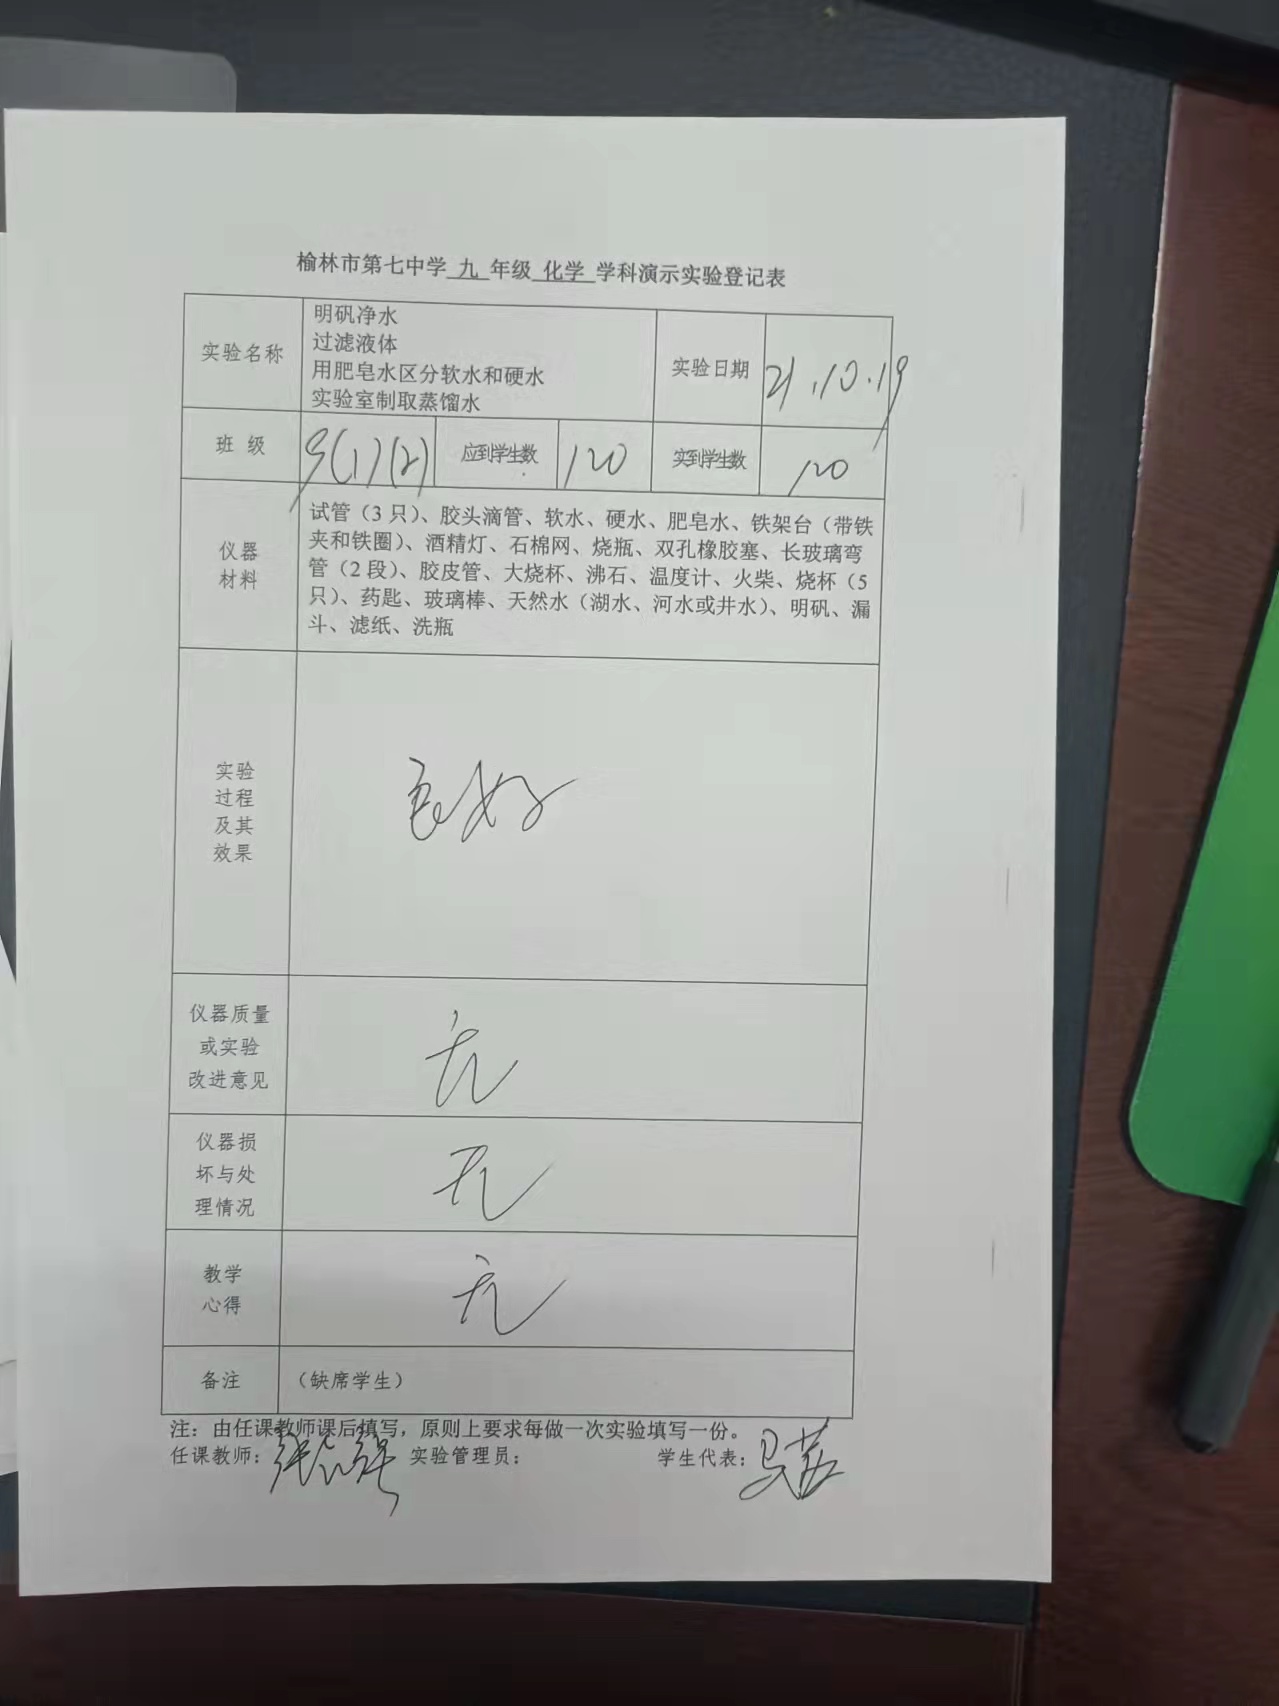 榆林市第七中学 九 年级 化学 学科演示实验登记表
实验名称
明矾净水
过滤液体
用肥皂水区分软水和硬水
实验室制取蒸馏水
实验日期
21.10.19
班 级
9(1)(2)
应到学生数
120
实到学生数
120
仪器
材料
试管（3 只）、胶头滴管、软水、硬水、肥皂水、铁架台（带铁
夹和铁圈）、酒精灯、石棉网、烧瓶、双孔橡胶塞、长玻璃弯
管（2 段）、胶皮管、大烧杯、沸石、温度计、火柴、烧杯（5
只）、药匙、玻璃棒、天然水（湖水、河水或井水）、明矾、漏
斗、滤纸、洗瓶
实验
过程
及其
效果
良好
仪器质量
或实验
改进意见
无
仪器损
坏与处
理情况
无
教学
心得
无
备注
（缺席学生）
注：由任课教师课后填写，原则上要求每做一次实验填写一份。
任课教师： 实验管理员： 学生代表：